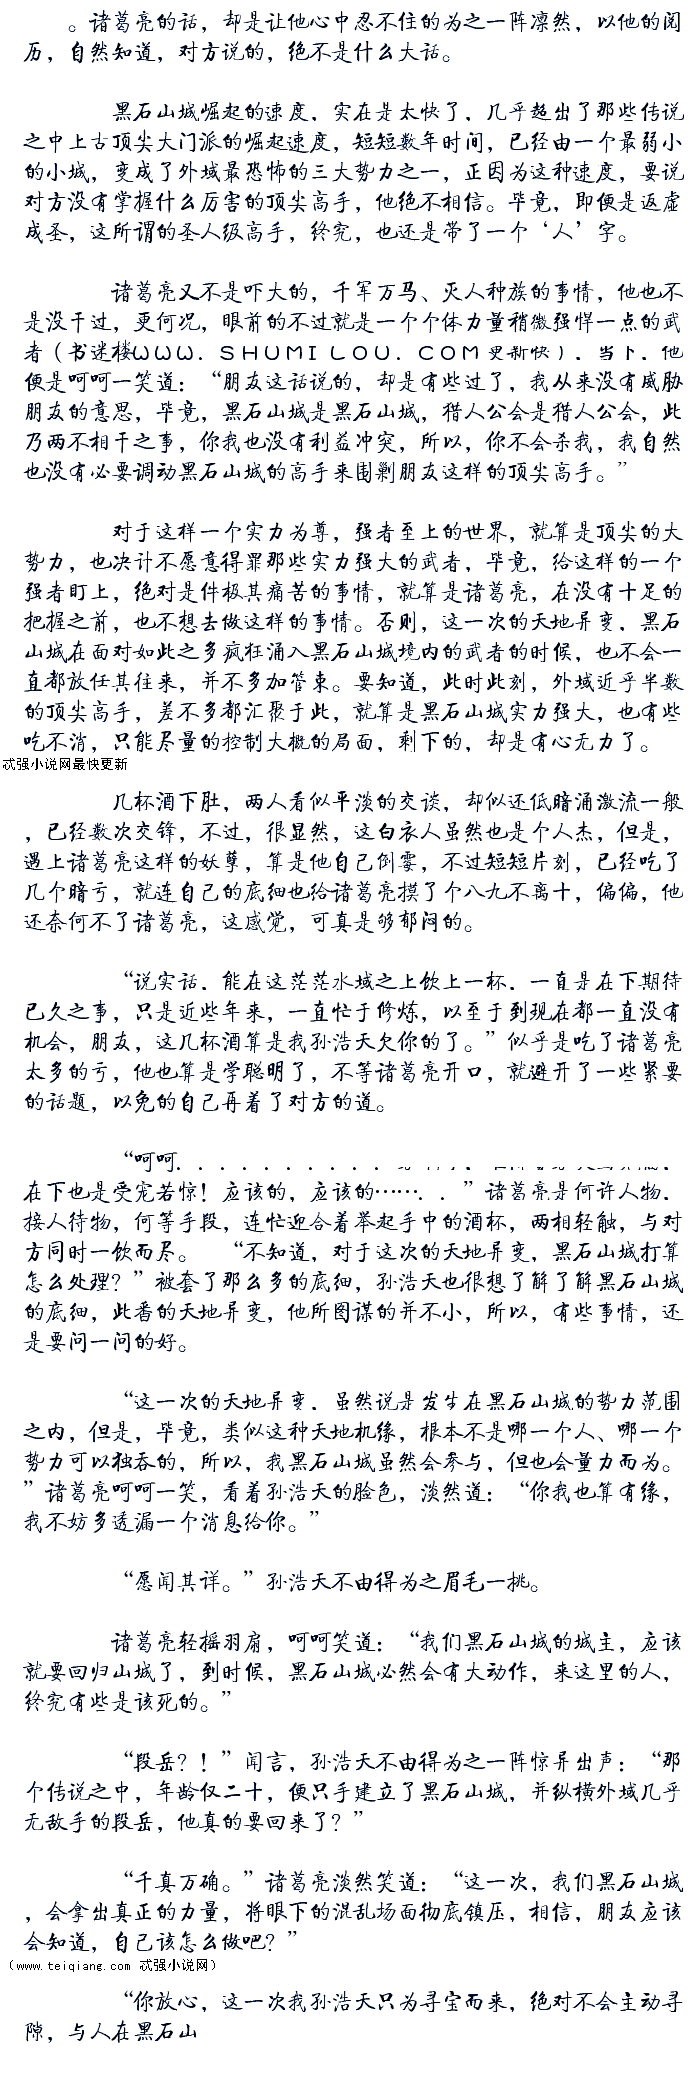 。诸葛亮的话，却是让他心中忍不住的为之一阵凛然，以他的阅
历，自然知道，对方说的，绝不是什么大话。
黑石山城崛起的速度，实在是太快了，几乎超出了那些传说
之中上古顶尖大门派的崛起速度，短短数年时间，已经由一个最弱小
的小城，变成了外域最恐怖的三大势力之一，正因为这种速度，要说
对方没有掌握什么厉害的顶尖高手，他绝不相信。毕竟，即便是返虚
成圣，这所谓的圣人级高手，终究，也还是带了一个‘人’字。
诸葛亮又不是吓大的，千军万马、灭人种族的事情，他也不
是没干过，更何况，眼前的不过就是一个个体力量稍微强悍一点的武
者（书迷楼ＷＷＷ．ＳＨＵＭＩＬＯＵ．ＣＯＭ更新快），当下，他
便是呵呵一笑道：“朋友这话说的，却是有些过了，我从来没有威胁
朋友的意思，毕竟，黑石山城是黑石山城，猎人公会是猎人公会，此
乃两不相干之事，你我也没有利益冲突，所以，你不会杀我，我自然
也没有必要调动黑石山城的高手来围剿朋友这样的顶尖高手。”
对于这样一个实力为尊，强者至上的世界，就算是顶尖的大
势力，也决计不愿意得罪那些实力强大的武者，毕竟，给这样的一个
强者盯上，绝对是件极其痛苦的事情，就算是诸葛亮，在没有十足的
把握之前，也不想去做这样的事情。否则，这一次的天地异变，黑石
山城在面对如此之多疯狂涌入黑石山城境内的武者的时候，也不会一
直都放任其往来，并不多加管束。要知道，此时此刻，外域近乎半数
的顶尖高手，差不多都汇聚于此，就算是黑石山城实力强大，也有些
吃不消，只能尽量的控制大概的局面，剩下的，却是有心无力了。
忒强小说网最快更新
几杯酒下肚，两人看似平淡的交谈，却似还低暗涌激流一般
，已经数次交锋，不过，很显然，这白衣人虽然也是个人杰，但是，
遇上诸葛亮这样的妖孽，算是他自己倒霉，不过短短片刻，已经吃了
几个暗亏，就连自己的底细也给诸葛亮摸了个八九不离十，偏偏，他
还奈何不了诸葛亮，这感觉，可真是够郁闷的。
“说实话，能在这茫茫水域之上饮上一杯，一直是在下期待
已久之事，只是近些年来，一直忙于修炼，以至于到现在都一直没有
机会，朋友，这几杯酒算是我孙浩天欠你的了。”似乎是吃了诸葛亮
太多的亏，他也算是学聪明了，不等诸葛亮开口，就避开了一些紧要
的话题，以免的自己再着了对方的道。
“呵呵．．．．．．．．．
在下也是受宠若惊！应该的，应该的……．．”诸葛亮是何许人物，
接人待物，何等手段，连忙迎合着举起手中的酒杯，两相轻触，与对
方同时一饮而尽。 “不知道，对于这次的天地异变，黑石山城打算
怎么处理？”被套了那么多的底细，孙浩天也很想了解了解黑石山城
的底细，此番的天地异变，他所图谋的并不小，所以，有些事情，还
是要问一问的好。
“这一次的天地异变，虽然说是发生在黑石山城的势力范围
之内，但是，毕竟，类似这种天地机缘，根本不是哪一个人、哪一个
势力可以独吞的，所以，我黑石山城虽然会参与，但也会量力而为。
”诸葛亮呵呵一笑，看着孙浩天的脸色，淡然道：“你我也算有缘，
我不妨多透漏一个消息给你。”
“愿闻其详。”孙浩天不由得为之眉毛一挑。
诸葛亮轻摇羽扇，呵呵笑道：“我们黑石山城的城主，应该
就要回归山城了，到时候，黑石山城必然会有大动作，来这里的人，
终究有些是该死的。”
“段岳？！”闻言，孙浩天不由得为之一阵惊异出声：“那
个传说之中，年龄仅二十，便只手建立了黑石山城，并纵横外域几乎
无敌手的段岳，他真的要回来了？”
“千真万确。”诸葛亮淡然笑道：“这一次，我们黑石山城
，会拿出真正的力量，将眼下的混乱场面彻底镇压，相信，朋友应该
会知道，自己该怎么做吧？”
（www.teiqiang.com 忒强小说网）
“你放心，这一次我孙浩天只为寻宝而来，绝对不会主动寻
隙，与人在黑石山